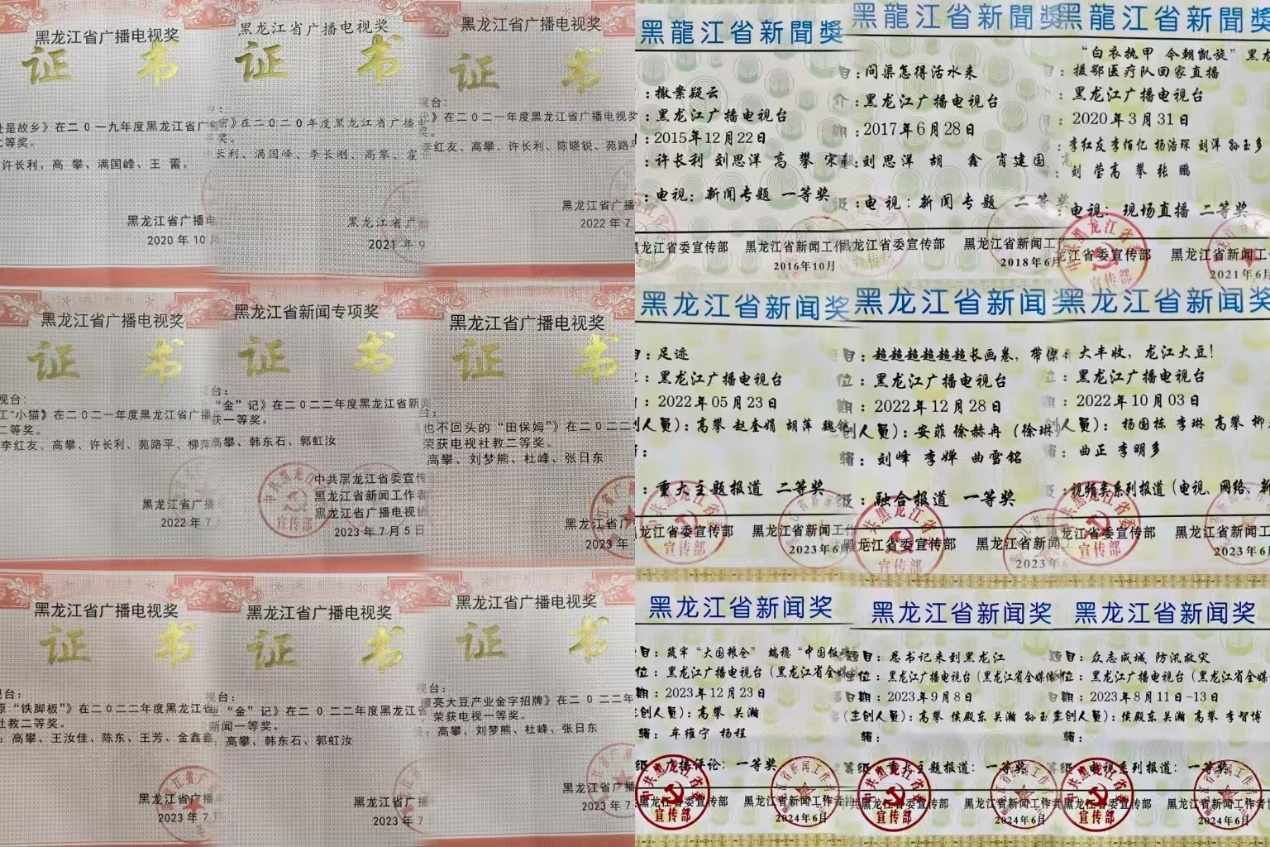 黑龙江省广播电视奖
证书
是故乡》在二0一九年度黑龙江省广
等奖。
许长利、高攀、满国峰、王蕾。
黑龙江省广播电
2020年10月
黑龙江省广播电视奖
证书
》在二0二0年度黑龙江省广播
奖。
长利、满国峰、李长刚、高攀、霍
黑龙江省广
2021年9
黑龙江省广播电视奖
证书
视台:
》在二0二一年度黑龙江省广播电视奖
奖。
李红友、高攀、许长利、陈晓锐、苑路
黑龙江省广播
2022年7
黑龍江省新聞獎
:撤案疑云
:黑龙江广播电视台
:2015年12月22日
:许长利 刘思洋 高攀 宋
:电视:新闻专题 一等奖
龙江省委宣传部 黑龙江省新闻工作
2016年10月
黑龍江省新聞獎
目:问渠怎得活水来
:黑龙江广播电视台
:2017年6月28日
:刘思洋 胡鑫 肖建国
级:电视:新闻专题 二等奖
黑龙江省委宣传部 黑龙江省新闻工
2018年6月
黑龍江省新聞獎
“白衣执甲 今朝凯旋”黑龙
目:援鄂医疗队回家直播
:黑龙江广播电视台
:2020年3月31日
:李红友 李佰亿 杨浩琛 刘洋 孙玉多
刘莹 高攀 张鹏
:电视:现场直播 二等奖
龙江省委宣传部 黑龙江省新闻工
2021年6月
黑龙江省广播电视奖
证书
视台:
工“小猫》在二0二一年度黑龙江省广播
二等奖。
李红友、高攀、许长利、苑路平、柳
黑龙江省广播
2022年7
黑龙江省新闻专项奖
证书
视台:
“金”记》在二0二二年度黑龙江省新闻
获一等奖。
高攀、韩东石、郭虹汝
中共黑龙江省委宣传
黑龙江省新闻工作者
黑龙江省广播电视协
2023年7月5日
黑龙江省广播电视奖
证书
台:
也不回头的“田保姆”》在二0二二
荣获电视社教二等奖。
高攀、刘梦熊、杜峰、张日东
黑龙江省广
2023年
黑龙江省新闻奖
目:足迹
:黑龙江广播电视台
:2022年05月23日
创人员):高攀 赵奎娟 胡萍 魏
:
:重大主题报道 二等奖
龙江省委宣传部 黑龙江省新闻工作
2023年6月
黑龙江省新闻奖
目:超超超超超超长画卷,带你
位:黑龙江广播电视台
:2022年12月28日
创人员):安菲 徐赫冉(徐琳
辑:刘峰 李婵 曲雪铭
级:融合报道 一等奖
黑龙江省委宣传部 黑龙江省新闻
2023年6
黑龙江省新闻奖
目:大丰收,龙江大豆!
位:黑龙江广播电视台
:2022年10月03日
创人员):杨国栋 李琳 高攀 柳
:曲正 李明多
:视频类系列报道(电视、网络、新
龙江省委宣传部 黑龙江省新闻工
2023年6月
黑龙江省广播电视奖
证书
视台:
“铁脚板”》在二0二二年度黑龙江省
社教二等奖。
:高攀、王汝佳、陈东、王芳、金鑫
黑龙江省广播
2023年7
黑龙江省广播电视奖
证书
视台:
“金”记》在二0二二年度黑龙江省
新闻一等奖。
高攀、韩东石、郭虹汝
黑龙江省广播
2023年7
黑龙江省广播电视奖
证书
视台:
擦亮大豆产业金字招牌》在二0二二年
荣获电视一等奖。
高攀、刘梦熊、杜峰、张日东
黑龙江省广播
2023年7
黑龙江省新闻奖
目:筑牢“大国粮仓” 端稳“中国饭碗
位:黑龙江广播电视台(黑龙江省全媒体
期:2023年12月23日
创人员):高攀 关瀚
辑:牟维宁 杨程
级:广播评论:一等奖
黑龙江省委宣传部 黑龙江省新闻工作者协
2024年6月
黑龙江省新闻奖
题目:总书记来到黑龙江
单位:黑龙江广播电视台(黑龙江省全媒体
日期:2023年9月8日
(主创人员):高攀 侯殿东 关瀚 孙玉
辑:
等级:重大主题报道:一等奖
共黑龙江省委宣传部 黑龙江省新闻工作者
2024年6月
黑龙江省新闻奖
题目:众志成城 防汛救灾
单位:黑龙江广播电视台(黑龙江省全媒
日期:2023年8月11日-13日
主创人员):侯殿东 关瀚 高攀 李智博
辑:
等级:电视系列报道:一等奖
黑龙江省委宣传部 黑龙江省新闻工作者协
2024年6月